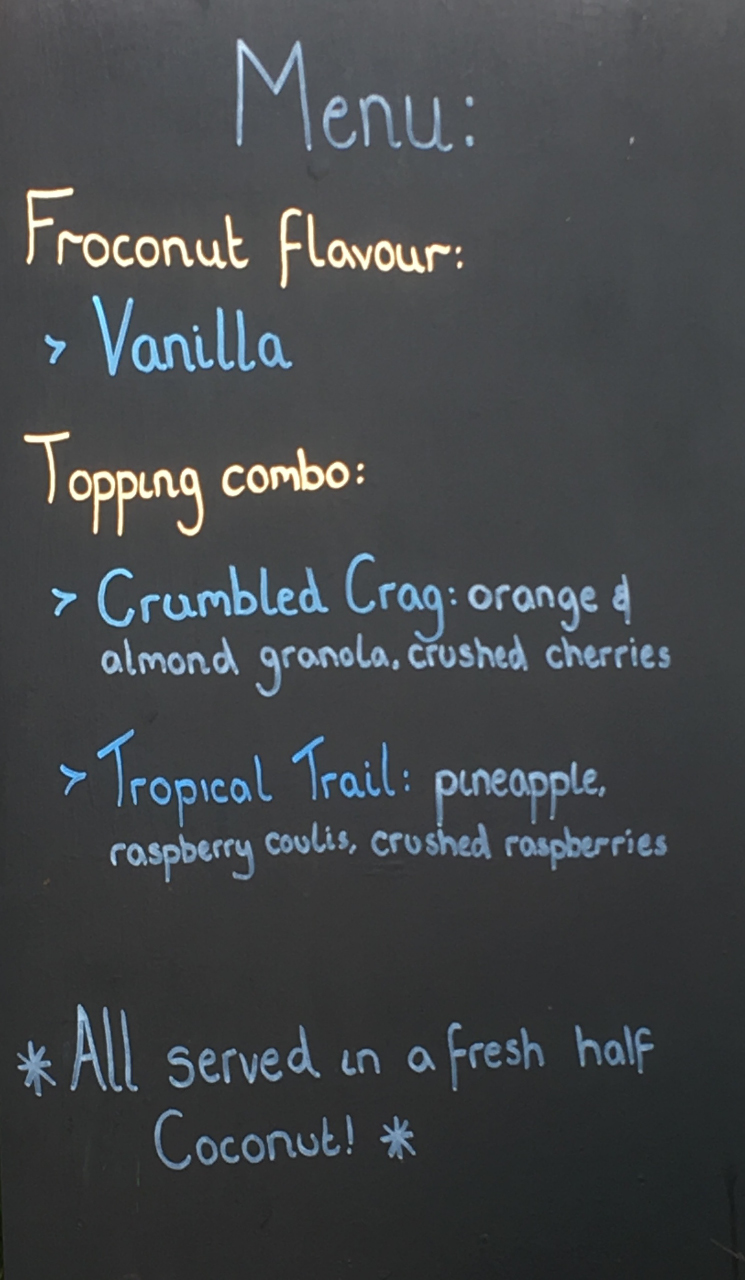 Menu:
Froconut flavour:
> Vanilla
Topping combo:
> Crumbled Crag: orange &
almond granola, crushed cherries
> Tropical Trail: pineapple,
raspberry coulis, crushed raspberries
* All served in a fresh half
Coconut! *